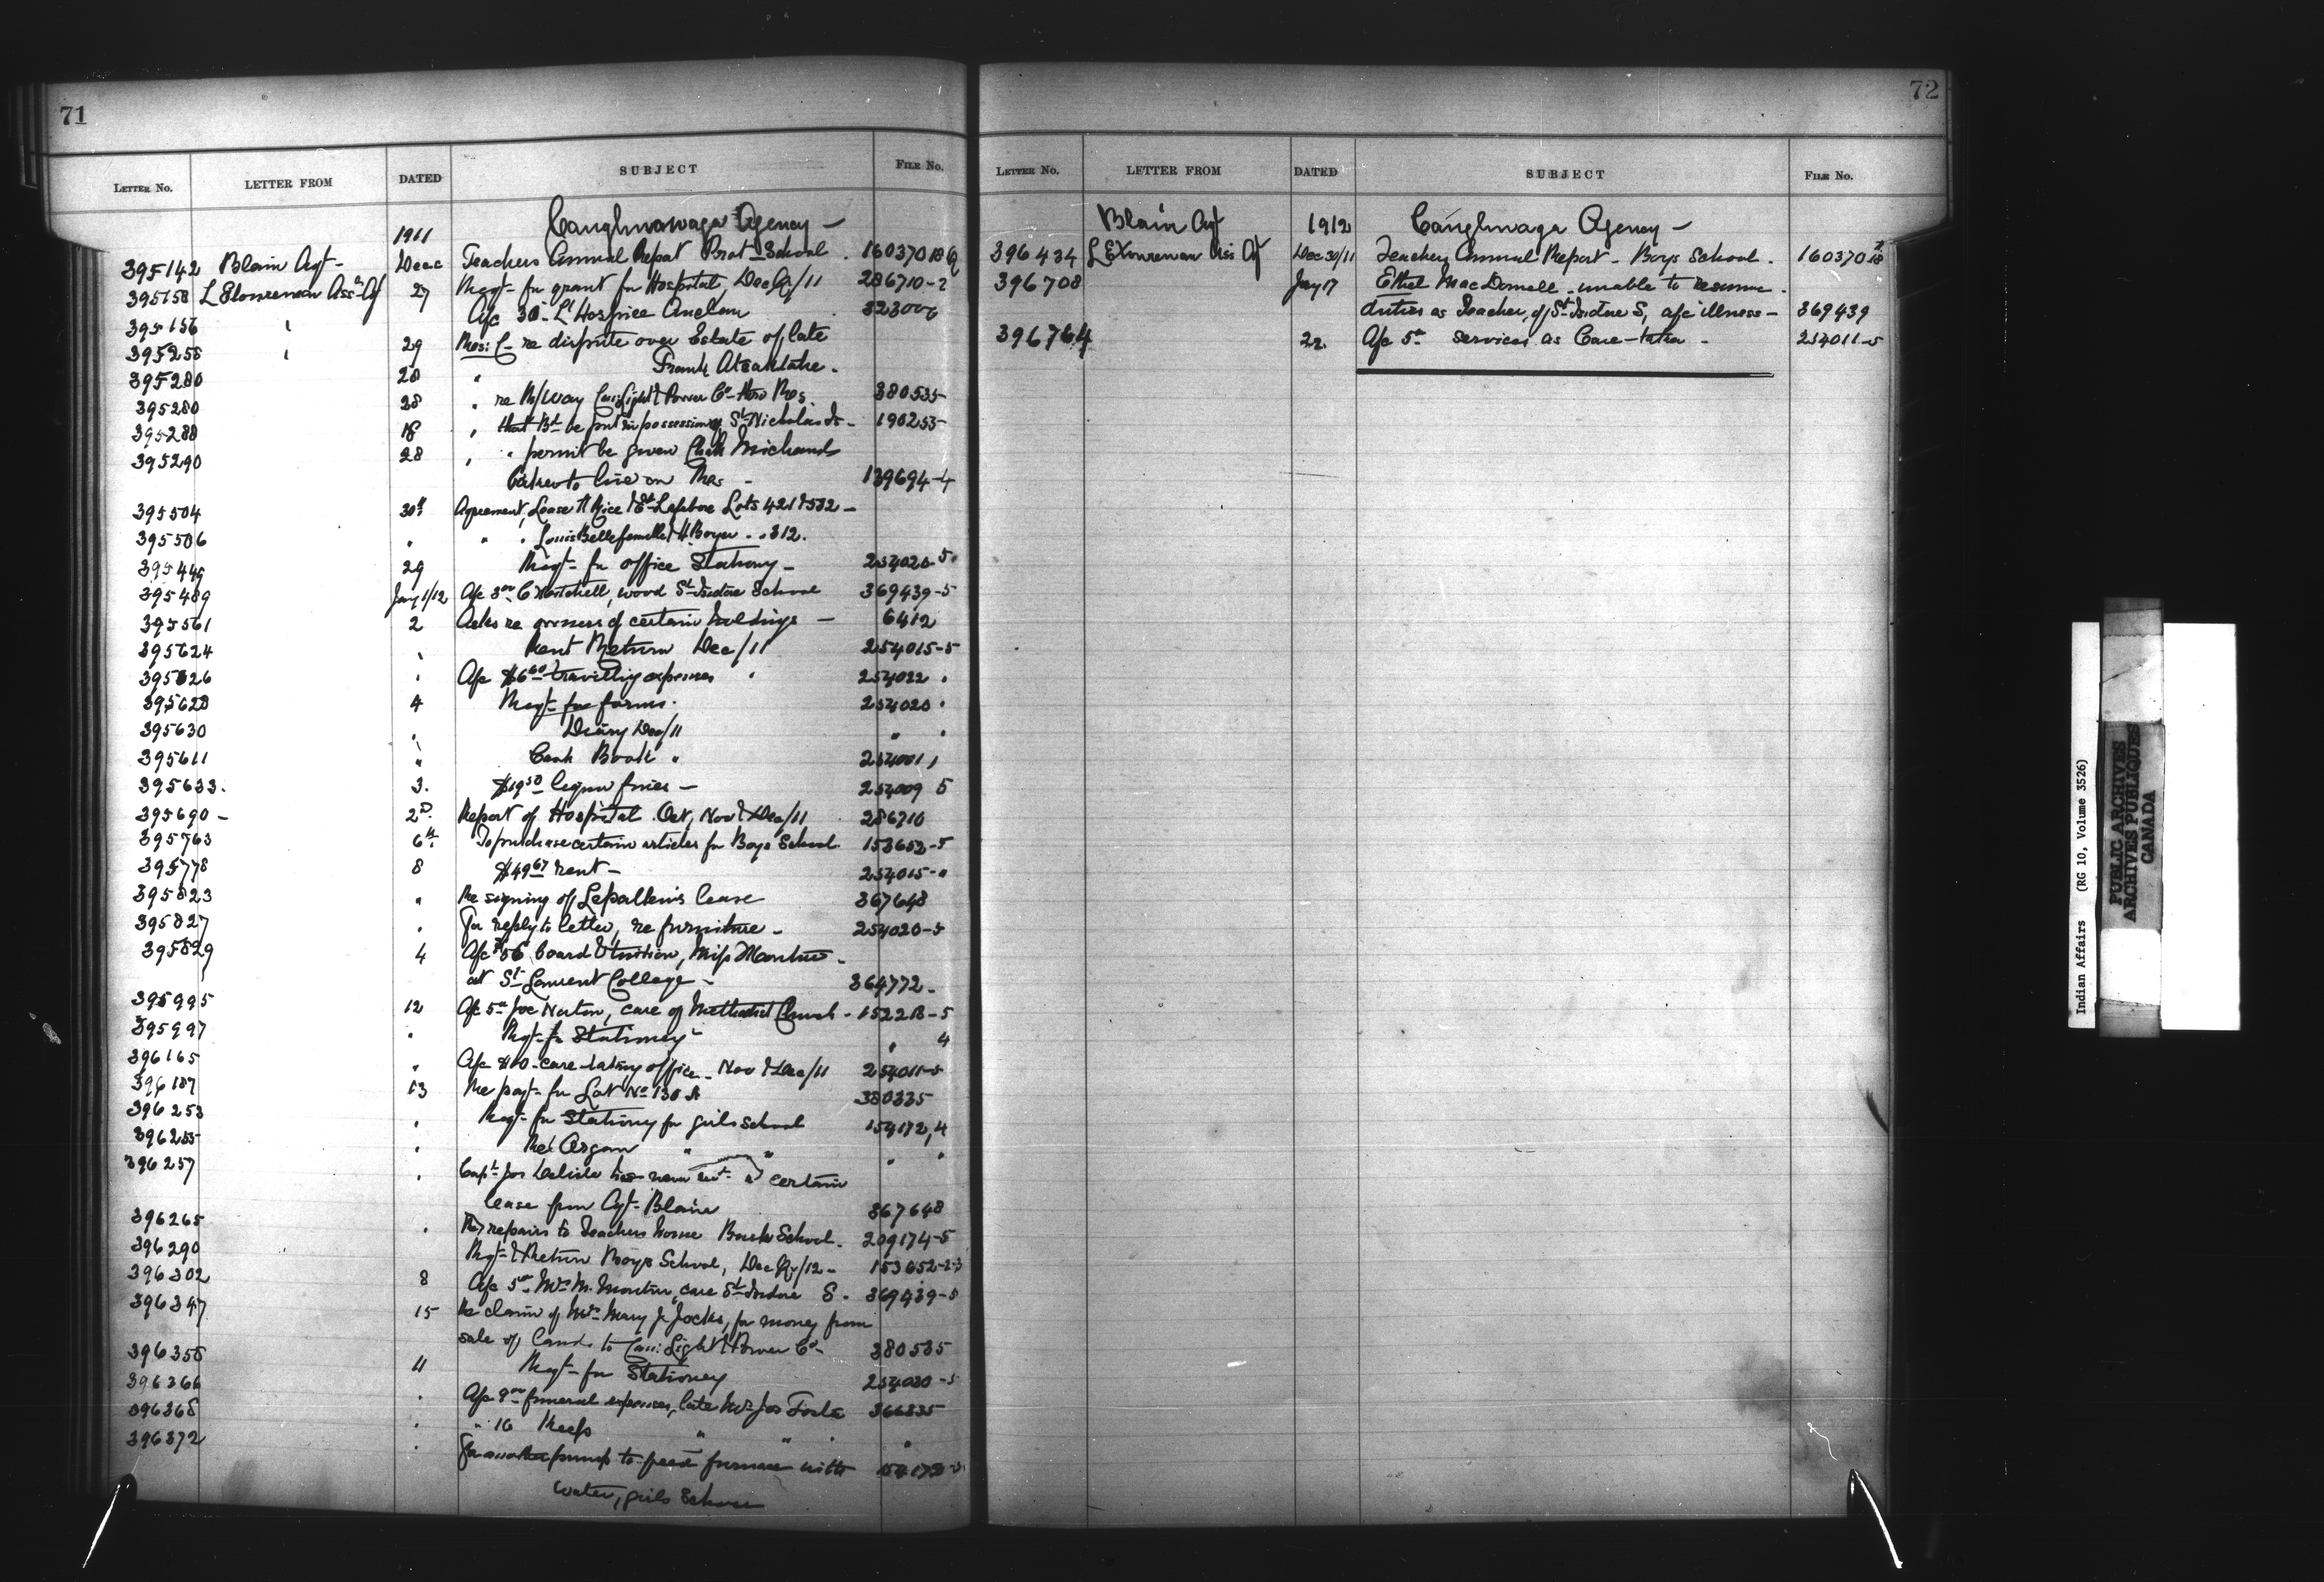 71
LETTER No. LETTER FROM DATED SUBJECT FILE No.
1911 Caughnawaga Agency —
395142 Blain Agt - Dec Teachers Annual Report Prot School . 160370
395158 Ass Ag 27 Reqt - for grant for Hospital, Dec Qr/11 286710-2
395156 " A/c 30 - L' Hospice Auclair 323006
395258 " 29 Res: C - re dispute over Estate of late
Frank
395280 28 "
395280 28 " re R/Way Can: Light & Power Co - thro Res. 380535
395288 18 " that Bd be put in possession of St Nicholas Is - 190255
395290 28 " " permit be given Michaud
to live on Res - 139694-4
395504 30th Agreement, Lease Rice & Lefebvre Lots 421 & 532 -
395506 " " " Louis & H. Boyer " " 312.
29 Reqt - for office Stationy - 254020-5
395489 Jany 1/12 A/c 3 00 C Mitchell, wood St Isidore School 369439-5
395561 2 Asks re owners of certain holdings — 6412
395624 " Rent Return Dec/11 254015-5
395626 " A/c $6 60 travelling expenses " 254022 "
395628 4 Reqt - for forms . 254020 "
395630 " Diary Dec/11 " "
395611 " Cash Book " 254001 "
395633. 3. $19 50 liquor fines — 254009 5
395690 - 2 D. Report of Hospital Oct, Nov & Dec/11 286710
395763 6th To purchase certain articles for Boys School 153652-5
395778 8 $49 67 rent - 254015-"
395823 " Re signing of lease 367648
395827 " For reply to letter, re furniture - 254020-5
395829 4 A/c $56 board & tuition, Miss Montour -
at St Laurent College - 364772 -
395995 12 A/c 5 00 Joe Norton, care of Methodist Church - 152218-5
395997 " Reqt - for Stationery - " 4
396165 " A/c $10 - care-taking office - Nov & Dec/11 254011-5
396187 13 Re payt - for Lot No 130 380335
396253 " Reqt - for Stationery for girls school 154172, 4
396255 " Re Organ " " " "
396257 " Capt - Jos Delisle certain
lease from Agt - Blain 367648
396265 " Re repairs to Teachers house Bush School - 209174-5
396290 Reqt - & Return Boys School, Dec Qr/12 - 153652-2-3
396302 8 A/c 5 00 Mrs M. Montour, care St Isidore S - 369439-5
396347 15 Re claim of Mrs Mary J Jocks, for money from
sale of Land to Can: Light & Power Co - 380535
396356 11 Reqt - for Stationery 254020-5
396366 " A/c 9 00 funeral expenses, late Mrs Jos Foster 366335
396368 " " 16 " " " "
396372 " For another pump to feed furnace with 154172
water, girls School
72
LETTER No. LETTER FROM DATED SUBJECT FILE No.
Blain Agt 1912 Caughnwaga Agency —
396434 Dec 30/11 Teachers Annual Report - Boys School . 160370
396708 Jany 17 Ethel MacDonell - unable to resume -
duties as Teacher, of St Isidore S, a/c illness — 369439
396764 22 A/c 5 00 services as Care-taker - 254011-5
Indian Affairs (RG 10, Volume 3526)
PUBLIC ARCHIVES
ARCHIVES PUBLIQUES
CANADA